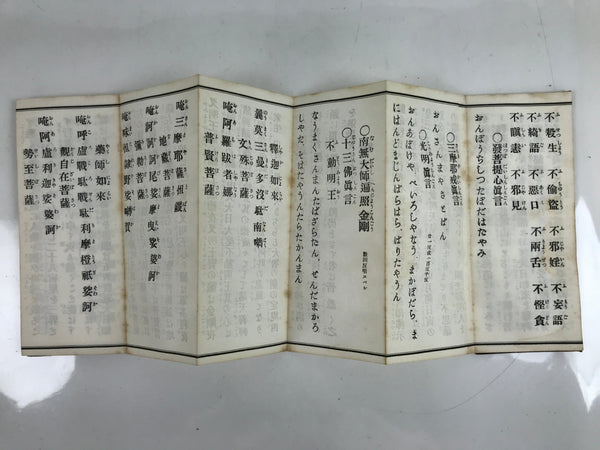 不殺生 不偸盜 不邪婬 不妄語
不綺語 不惡口 不兩舌 不慳貪
不瞋恚 不邪見
〇發菩提心眞言
おんぼうちしつたぼだはたやみ
〇三摩耶戒眞言
おんさんまやさとばん
〇光明眞言
おんあぼけや、べいろしやなう、まかぼだら、ま
にはんどまじんばらはら、ばりたやうん
〇南無大師遍照金剛
〇十三佛眞言
不動明王
なうまくさんまんだばざらだん、せんだまかろ
しやだ、そはたやうんたらたかんまん
釋迦如來
曩莫三曼多沒駄南嚩
文殊菩薩
唵阿羅跛者娜
普賢菩薩
唵三摩耶薩怛鑁
地藏菩薩
唵訶訶訶尾娑摩曳娑婆訶
彌勒菩薩
藥師如來
唵呼盧戰駄利摩橙祇娑婆訶
觀自在菩薩
唵阿盧利迦娑婆訶
勢至菩薩